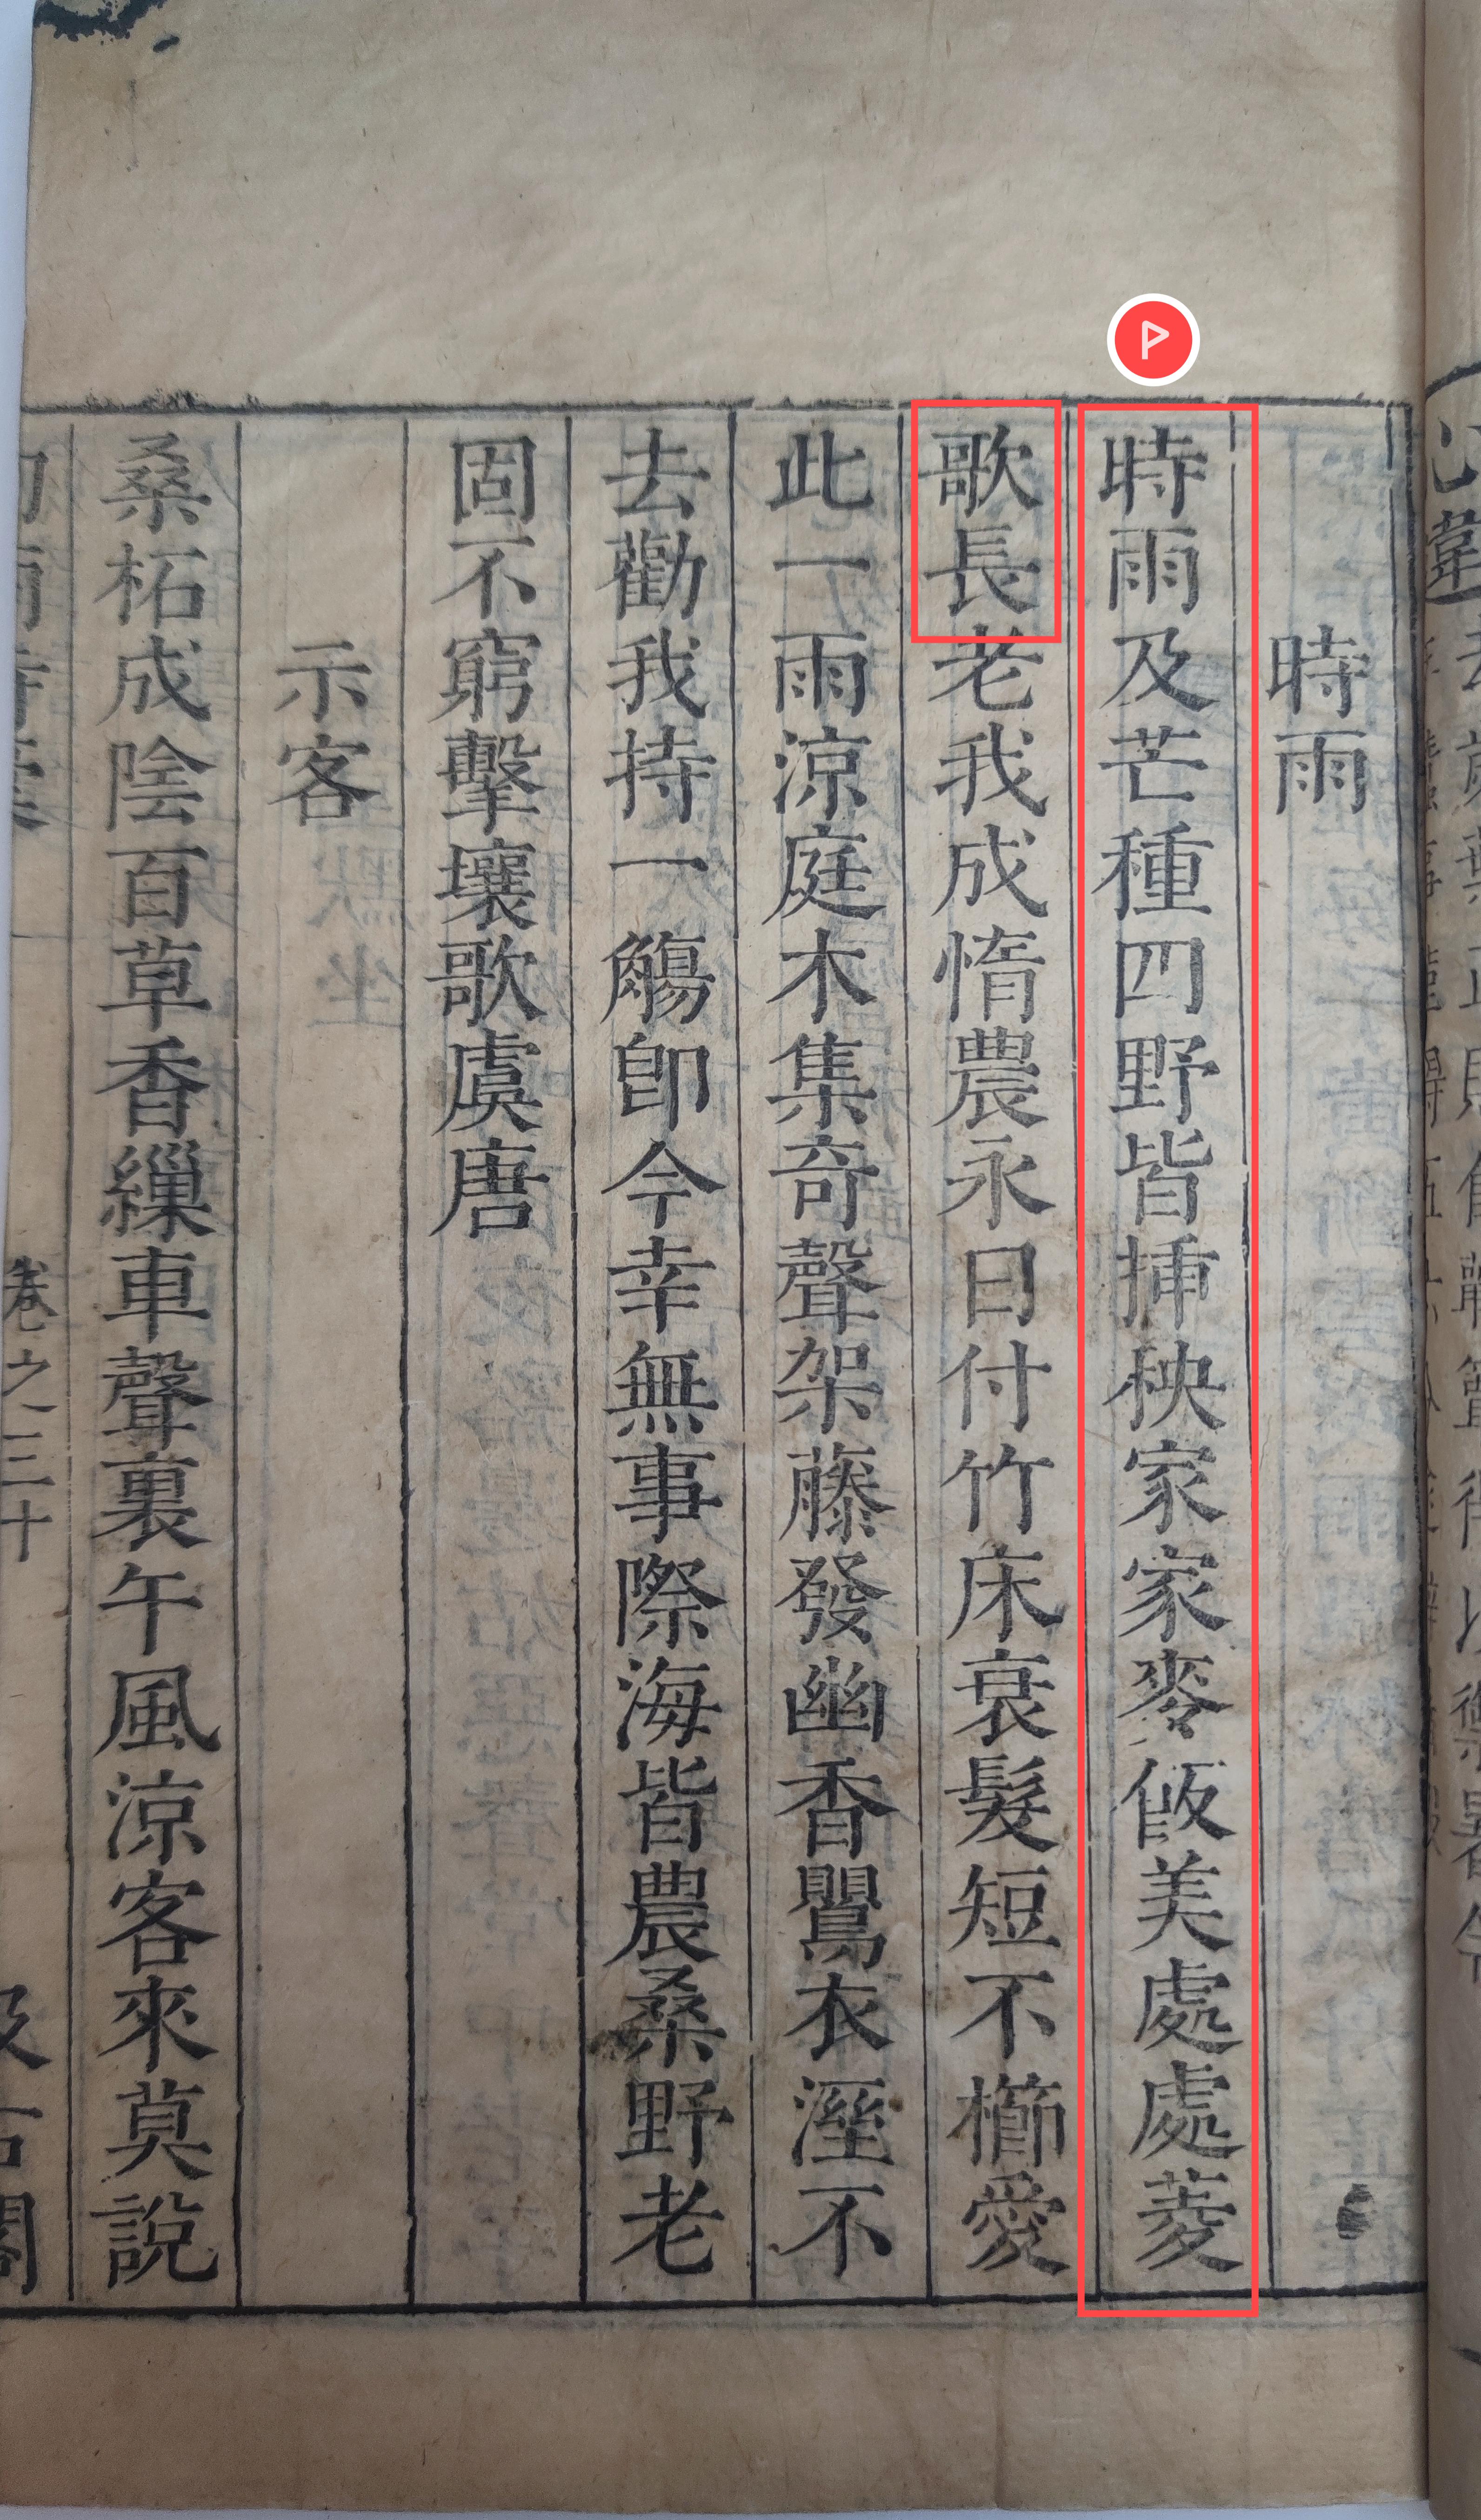 時雨
時雨及芒種四野皆揷秧家家麥飯美處處菱
歌長老我成惰農永日付竹床衰髮短不櫛愛
此一雨涼庭木集奇聲架藤發幽香鸎衣溼不
去勸我持一觴卽今幸無事際海皆農桑野老
固不窮擊壤歌虞唐
示客
桑柘成陰百草香繅車聲裏午風涼客來莫說
卷之三十